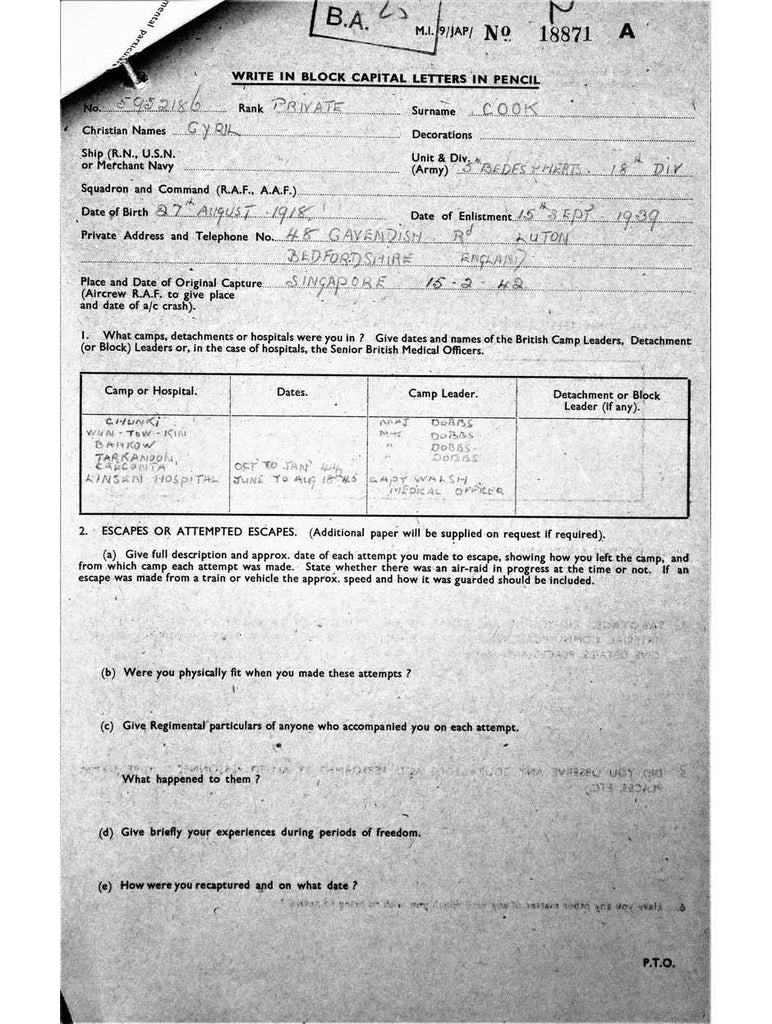 mental particulars
B.A. M.I.9/JAP/ No 18871 A
WRITE IN BLOCK CAPITAL LETTERS IN PENCIL
No. 5952186 Rank PRIVATE Surname COOK
Christian Names CYRIL Decorations
Ship (R.N., U.S.N. or Merchant Navy
Unit & Div. (Army) 5th BEDFS & HERTS. 18th DIV
Squadron and Command (R.A.F., A.A.F.)
Date of Birth 27th AUGUST 1918 Date of Enlistment 15th SEPT 1939
Private Address and Telephone No. 48 CAVENDISH Rd LUTON
BEDFORDSHIRE ENGLAND
Place and Date of Original Capture SINGAPORE 15-2-42
(Aircrew R.A.F. to give place
and date of a/c crash).
1. What camps, detachments or hospitals were you in ? Give dates and names of the British Camp Leaders, Detachment
(or Block) Leaders or, in the case of hospitals, the Senior British Medical Officers.
Camp or Hospital. Dates. Camp Leader. Detachment or Block
Leader (if any).
CHUNKI MAJ DOBBS
WUN-TOW-KIN MAJ DOBBS
BANKOW " DOBBS
TARKANOON, " DOBBS
OCT TO JAN 44
KINSEN HOSPITAL JUNE TO AUG 18th 45 CAPT WALSH
MEDICAL OFFICER
2. ESCAPES OR ATTEMPTED ESCAPES. (Additional paper will be supplied on request if required).
(a) Give full description and approx. date of each attempt you made to escape, showing how you left the camp, and
from which camp each attempt was made. State whether there was an air-raid in progress at the time or not. If an
escape was made from a train or vehicle the approx. speed and how it was guarded should be included.
(b) Were you physically fit when you made these attempts ?
(c) Give Regimental particulars of anyone who accompanied you on each attempt.
What happened to them ?
(d) Give briefly your experiences during periods of freedom.
(e) How were you recaptured and on what date ?
P.T.O.